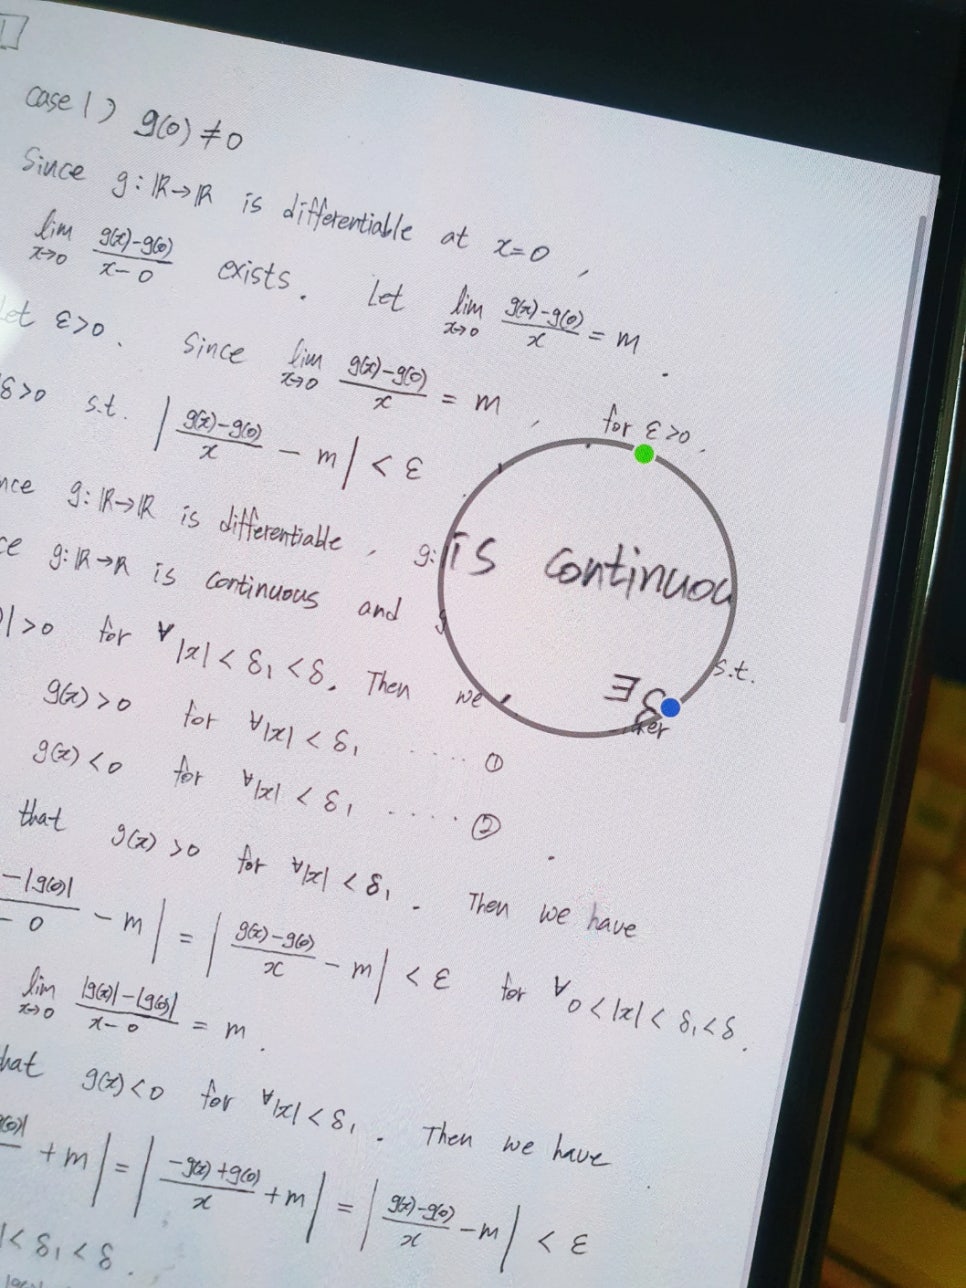 case 1) g(0) ≠ 0
Since g: ℝ→ℝ is differentiable at x=0,
lim x→0 (g(x)-g(0))/(x-0) exists. Let lim x→0 (g(x)-g(0))/x = m.
Let ε>0. Since lim x→0 (g(x)-g(0))/x = m, for ε>0,
δ>0 s.t. |(g(x)-g(0))/x - m| < ε
g: ℝ→ℝ is differentiable, g: is continuou
g: ℝ→ℝ is continuous and g ∃δ s.t.
|>0 for ∀|x| < δ₁ < δ. Then we
g(x)>0 for ∀|x| < δ₁ ..... ①
g(x)<0 for ∀|x| < δ₁ ..... ②
that g(x)>0 for ∀|x| < δ₁. Then we have
-|g(0)|/-0 - m| = |(g(x)-g(0))/x - m| < ε for ∀0<|x|<δ₁<δ.
lim x→0 (|g(x)|-|g(0)|)/(x-0) = m.
that g(x)<0 for ∀|x| < δ₁. Then we have
+m| = |(-g(x)+g(0))/x + m| = |(g(x)-g(0))/x - m| < ε
|<δ₁<δ.